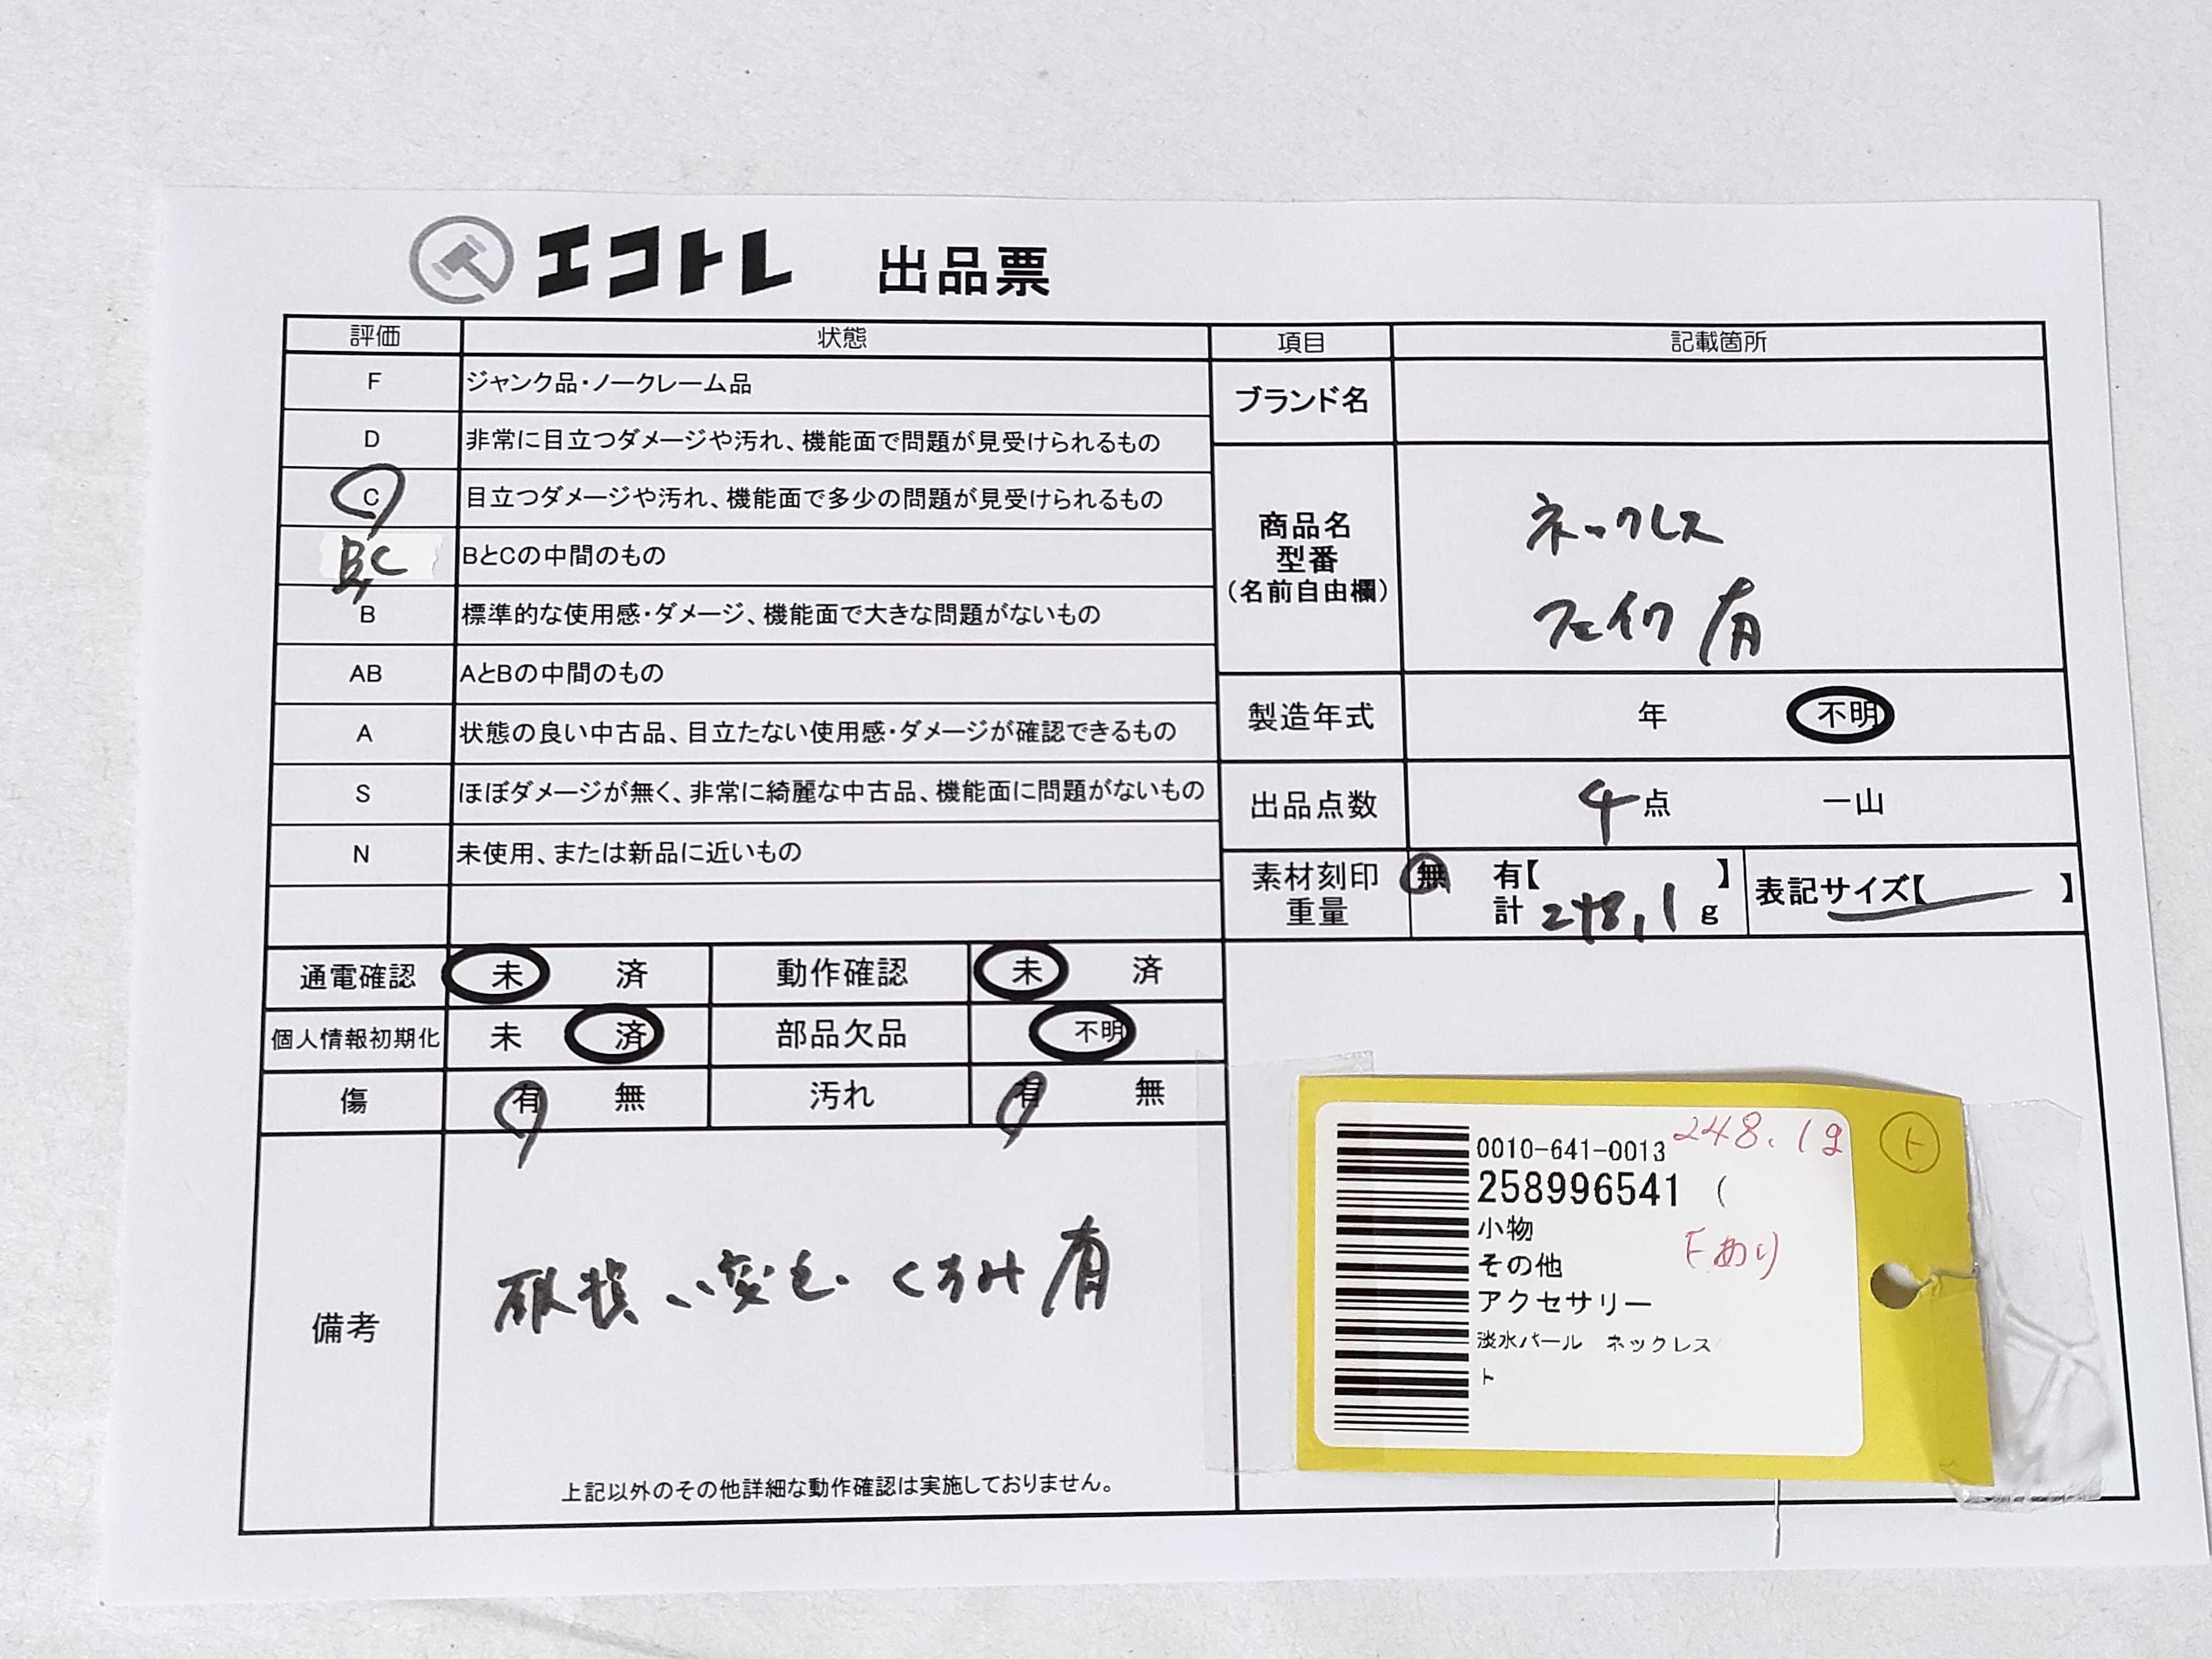 エコトレ 出品票
評価 状態
F ジャンク品・ノークレーム品
D 非常に目立つダメージや汚れ、機能面で問題が見受けられるもの
C 目立つダメージや汚れ、機能面で多少の問題が見受けられるもの
BC BとCの中間のもの
B 標準的な使用感・ダメージ、機能面で大きな問題がないもの
AB AとBの中間のもの
A 状態の良い中古品、目立たない使用感・ダメージが確認できるもの
S ほぼダメージが無く、非常に綺麗な中古品、機能面に問題がないもの
N 未使用、または新品に近いもの
通電確認 未 済 動作確認 未 済
個人情報初期化 未 済 部品欠品 不明
傷 有 無 汚れ 有 無
備考
破損、変色、くろみ有
上記以外のその他詳細な動作確認は実施しておりません。
項目 記載箇所
ブランド名
商品名
型番
(名前自由欄)
ネックレス
フェイク有
製造年式 年 不明
出品点数 4点 一山
素材刻印 無 有【 】
重量 計 248.1 g
表記サイズ【 】
0010-641-0013 248.1g
258996541 (
小物
その他 Fあり
アクセサリー
淡水パール ネックレス
ト
ト